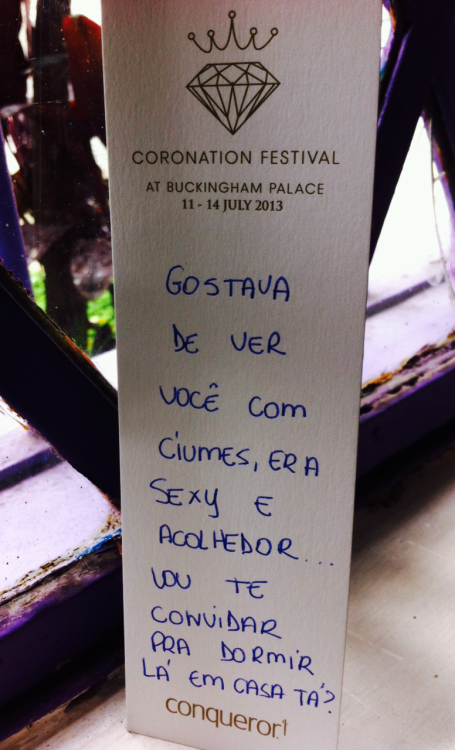 CORONATION FESTIVAL
AT BUCKINGHAM PALACE
11 - 14 JULY 2013
GOSTAVA
DE VER
VOCÊ COM
CÍUMES, ERA
SEXY E
ACOLHEDOR...
VOU TE
CONVIDAR
PRA DORMIR
LÁ EM CASA TÁ?
conqueror